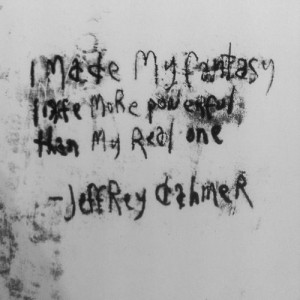 I made My fantasy
life more powerful
than My Real one
- Jeffrey dahmer